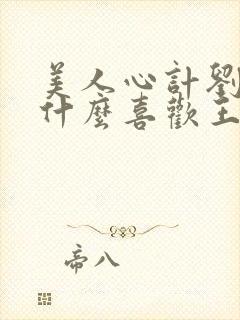 美人心計劉
什麼喜歡王
帝八